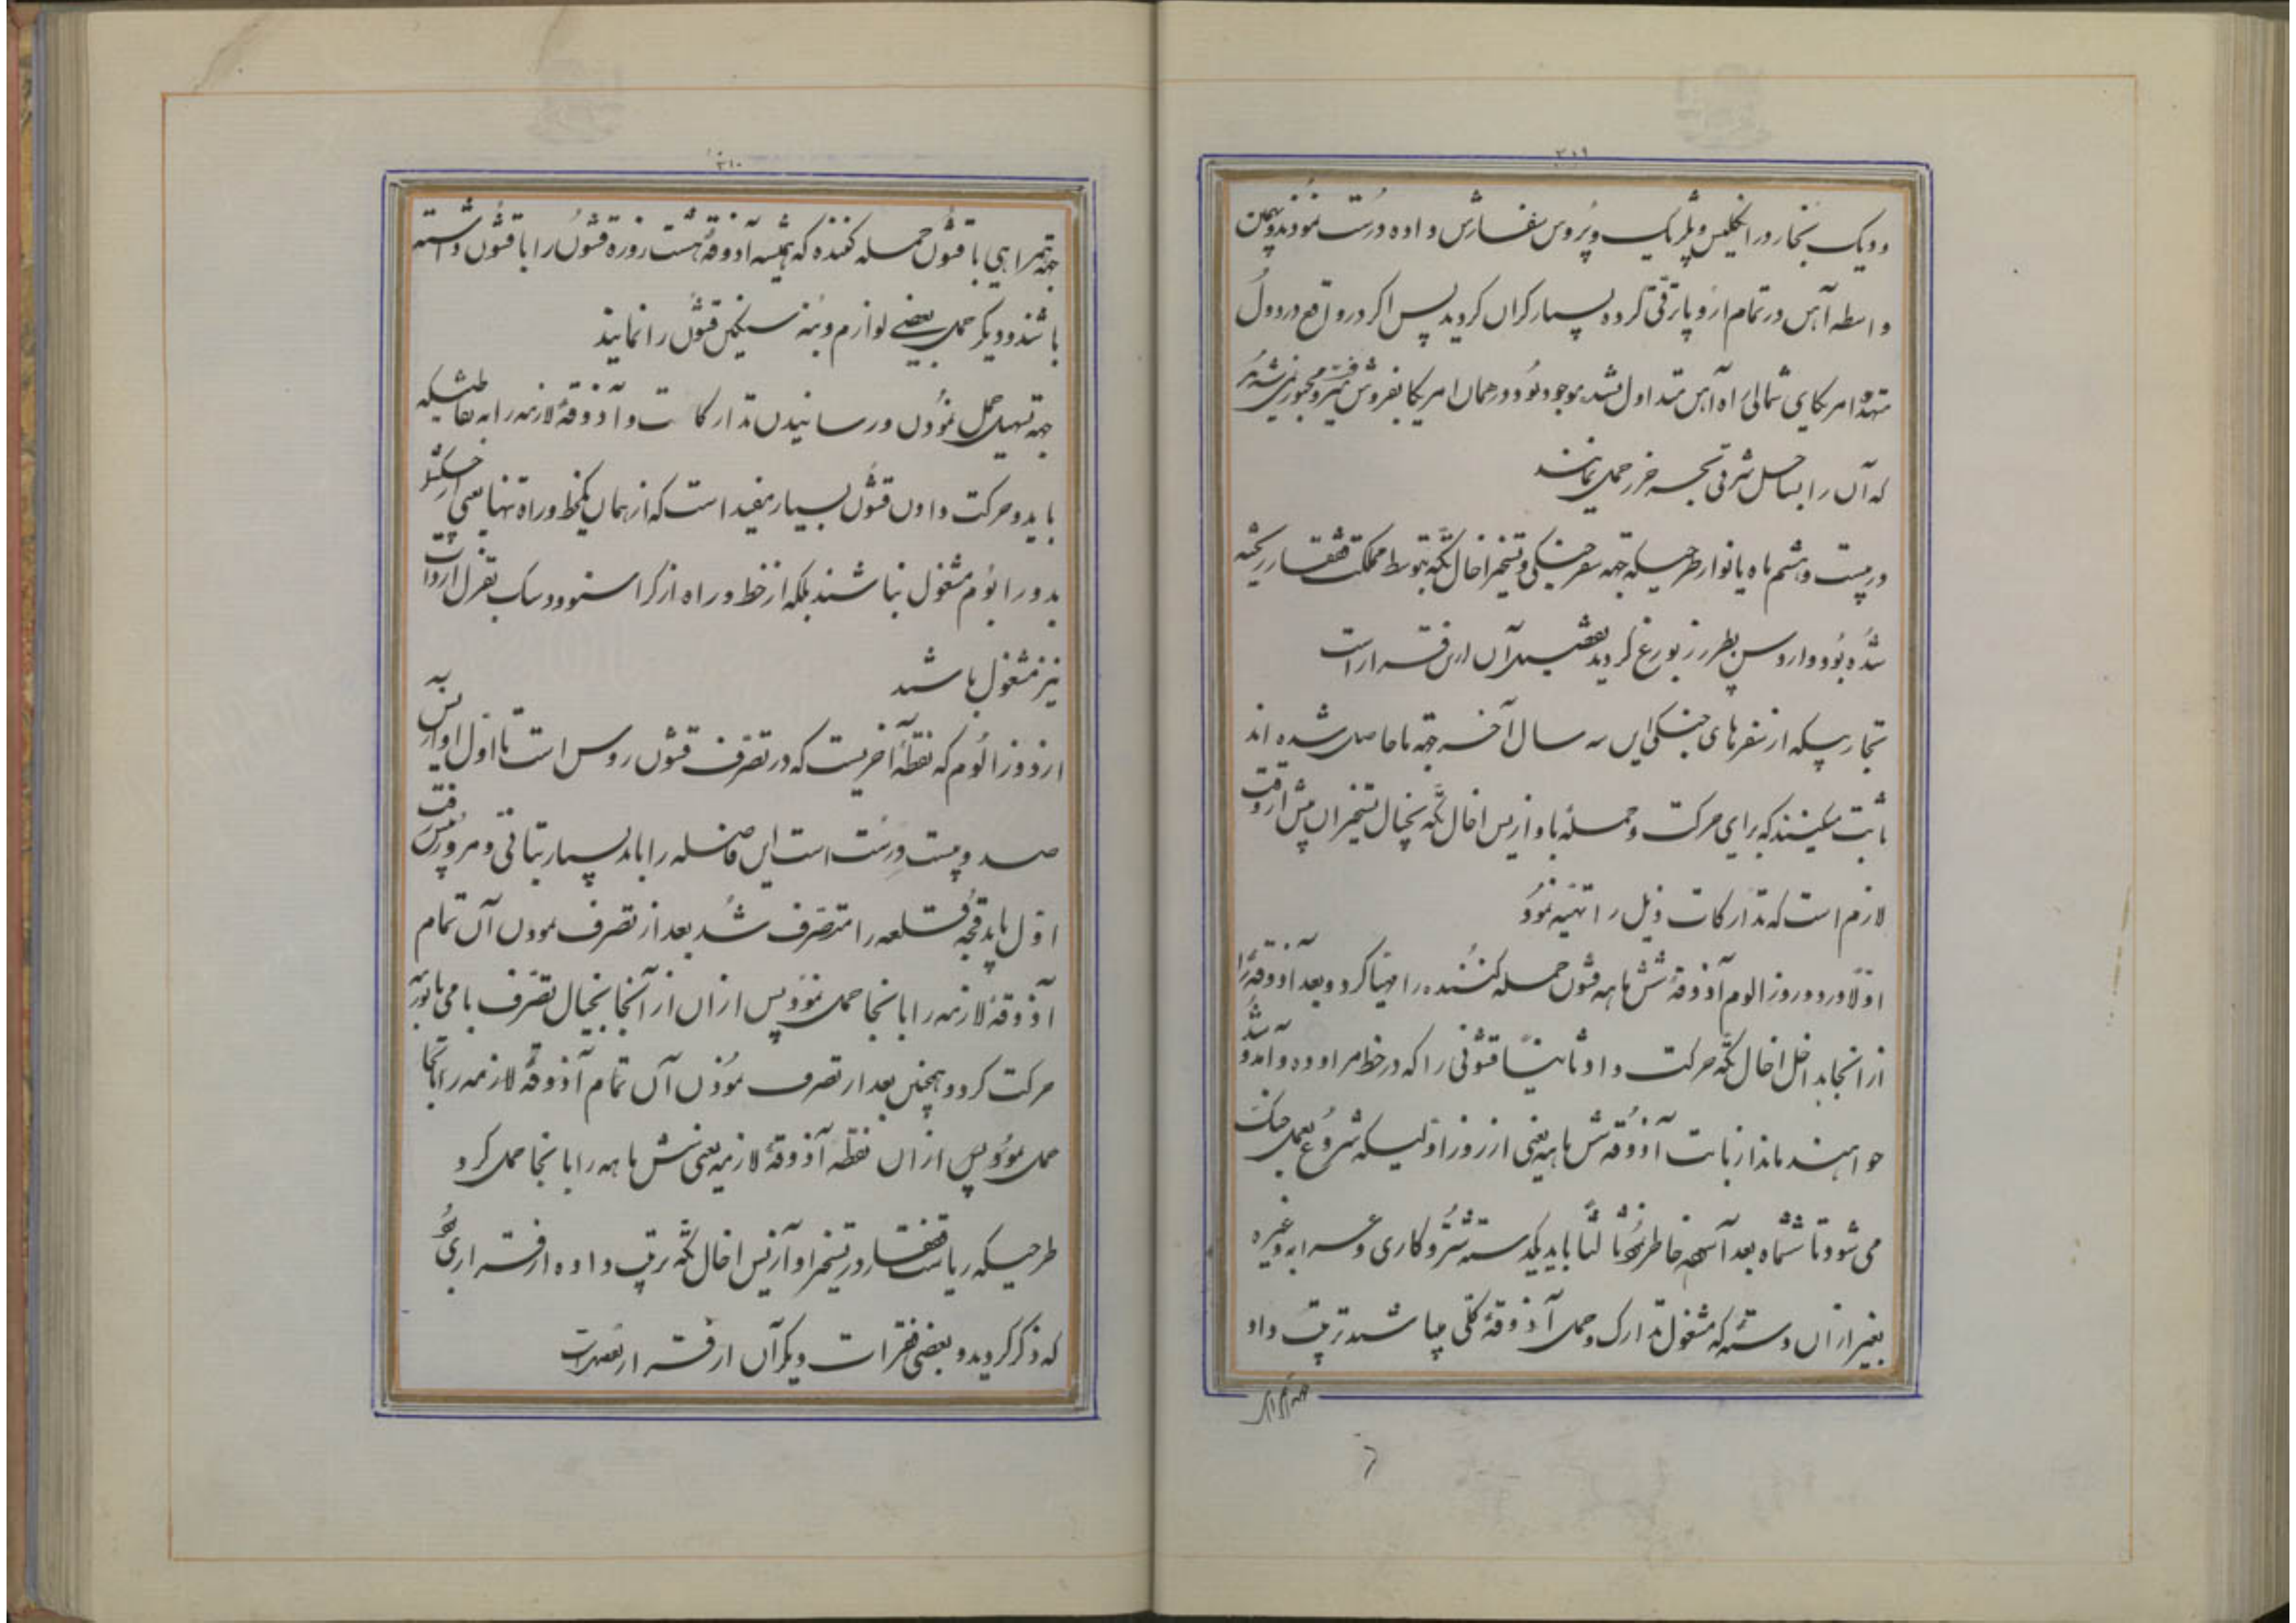 ۳۰۹
و دیک بخار در انگلیس و بلژیک و پروس سفارش داده درست نمودند و بهمین
واسطه آهن در تمام اروپا ترقی کرده بسیار گران گردید پس اگر در واقع در دول
متحده امریکای شمالی راه آهن متداول نشده موجود بود در همان امریکا بفروش میرفت و مجبور نمی‌شدند
که آن را بساحل شرقی بحر خزر حمل نمایند
در بیست و هشتم ماه یانوار طرحیکه جهه سفر جنگی و تسخیر اخال تکه بتوسط مملکت قفقاز ریخته
شده بود وارد سن پطرزبورغ گردید تفصیل آن ازین قرار است
تجاربیکه از سفرهای جنگی این سه سال آخر جهه ما حاصل شده اند
ثابت میکنند که برای حرکت و حمله با وازیس اخال تکه بخیال تسخیر آن پیش از وقت
لازم است که تدارکات ذیل را تهیه نمود
اولا در دوروز الوم آذوقهٔ شش ماهه قشون حمله کننده را مهیا کرد و بعد آذوقه را
از آنجا بداخل اخال تکه حرکت داد ثانیاً قشونی را که در خط مراوده و آمد و شد
خواهند ماند از بابت آذوقه شش ماهه یعنی از روز اولیکه شروع بعمل جنگ
می شود تا ششماه بعد آسوده خاطر نمود ثالثاً باید یکدسته شتر و گاری و عرابه و غیره
بغیر از آن دسته که مشغول تدارک و حمل آذوقهٔ کلی میباشند ترتیب داد
جهه همراهی
۳۱۰
جهه همراهی با قشون حمله کننده که همیشه آذوقهٔ هشت روزه قشون را با قشون داشته
باشند و دیگر حمل بعضی لوازم و بنه سنگین قشون را نمایند
جهه تسهیل حمل نمودن و رسانیدن تدارکات و آذوقهٔ لازمه را به نقاطیکه
باید و حرکت دادن قشون بسیار مفید است که از همان یکخط و راه تنها یعنی از چکشلر
بدوراُلوم مشغول نباشند بلکه از خط و راه از کراسنوودسک بقزل اروات
نیز مشغول باشند
از دوزالوم که نقطهٔ آخریست که در تصرف قشون روس است تا اول اوازیس به
صد و بیست ورست است این فاصله را باید بسیار بتأنی و مرور پیش رفت
اول باید قجه قلعه را متصرف شد بعد از تصرف نمودن آن تمام
آذوقهٔ لازمه را بانجا حمل نمود پس از آن از آنجا بخیال تصرف بامی با بورمه
حرکت کرد و همچنین بعد از تصرف نمودن آن تمام آذوقهٔ لازمه را بآنجا
حمل نمود و پس از آن نقطه آذوقهٔ لازمه یعنی شش ماهه را بانجا حمل کرد
طرحیکه ریاست قفقاز در تسخیر اوازیس اخال تکه ترتیب داده از قراری بود
که ذکر گردید و بعضی فقرات دیگر آن از قرار تفصیل است